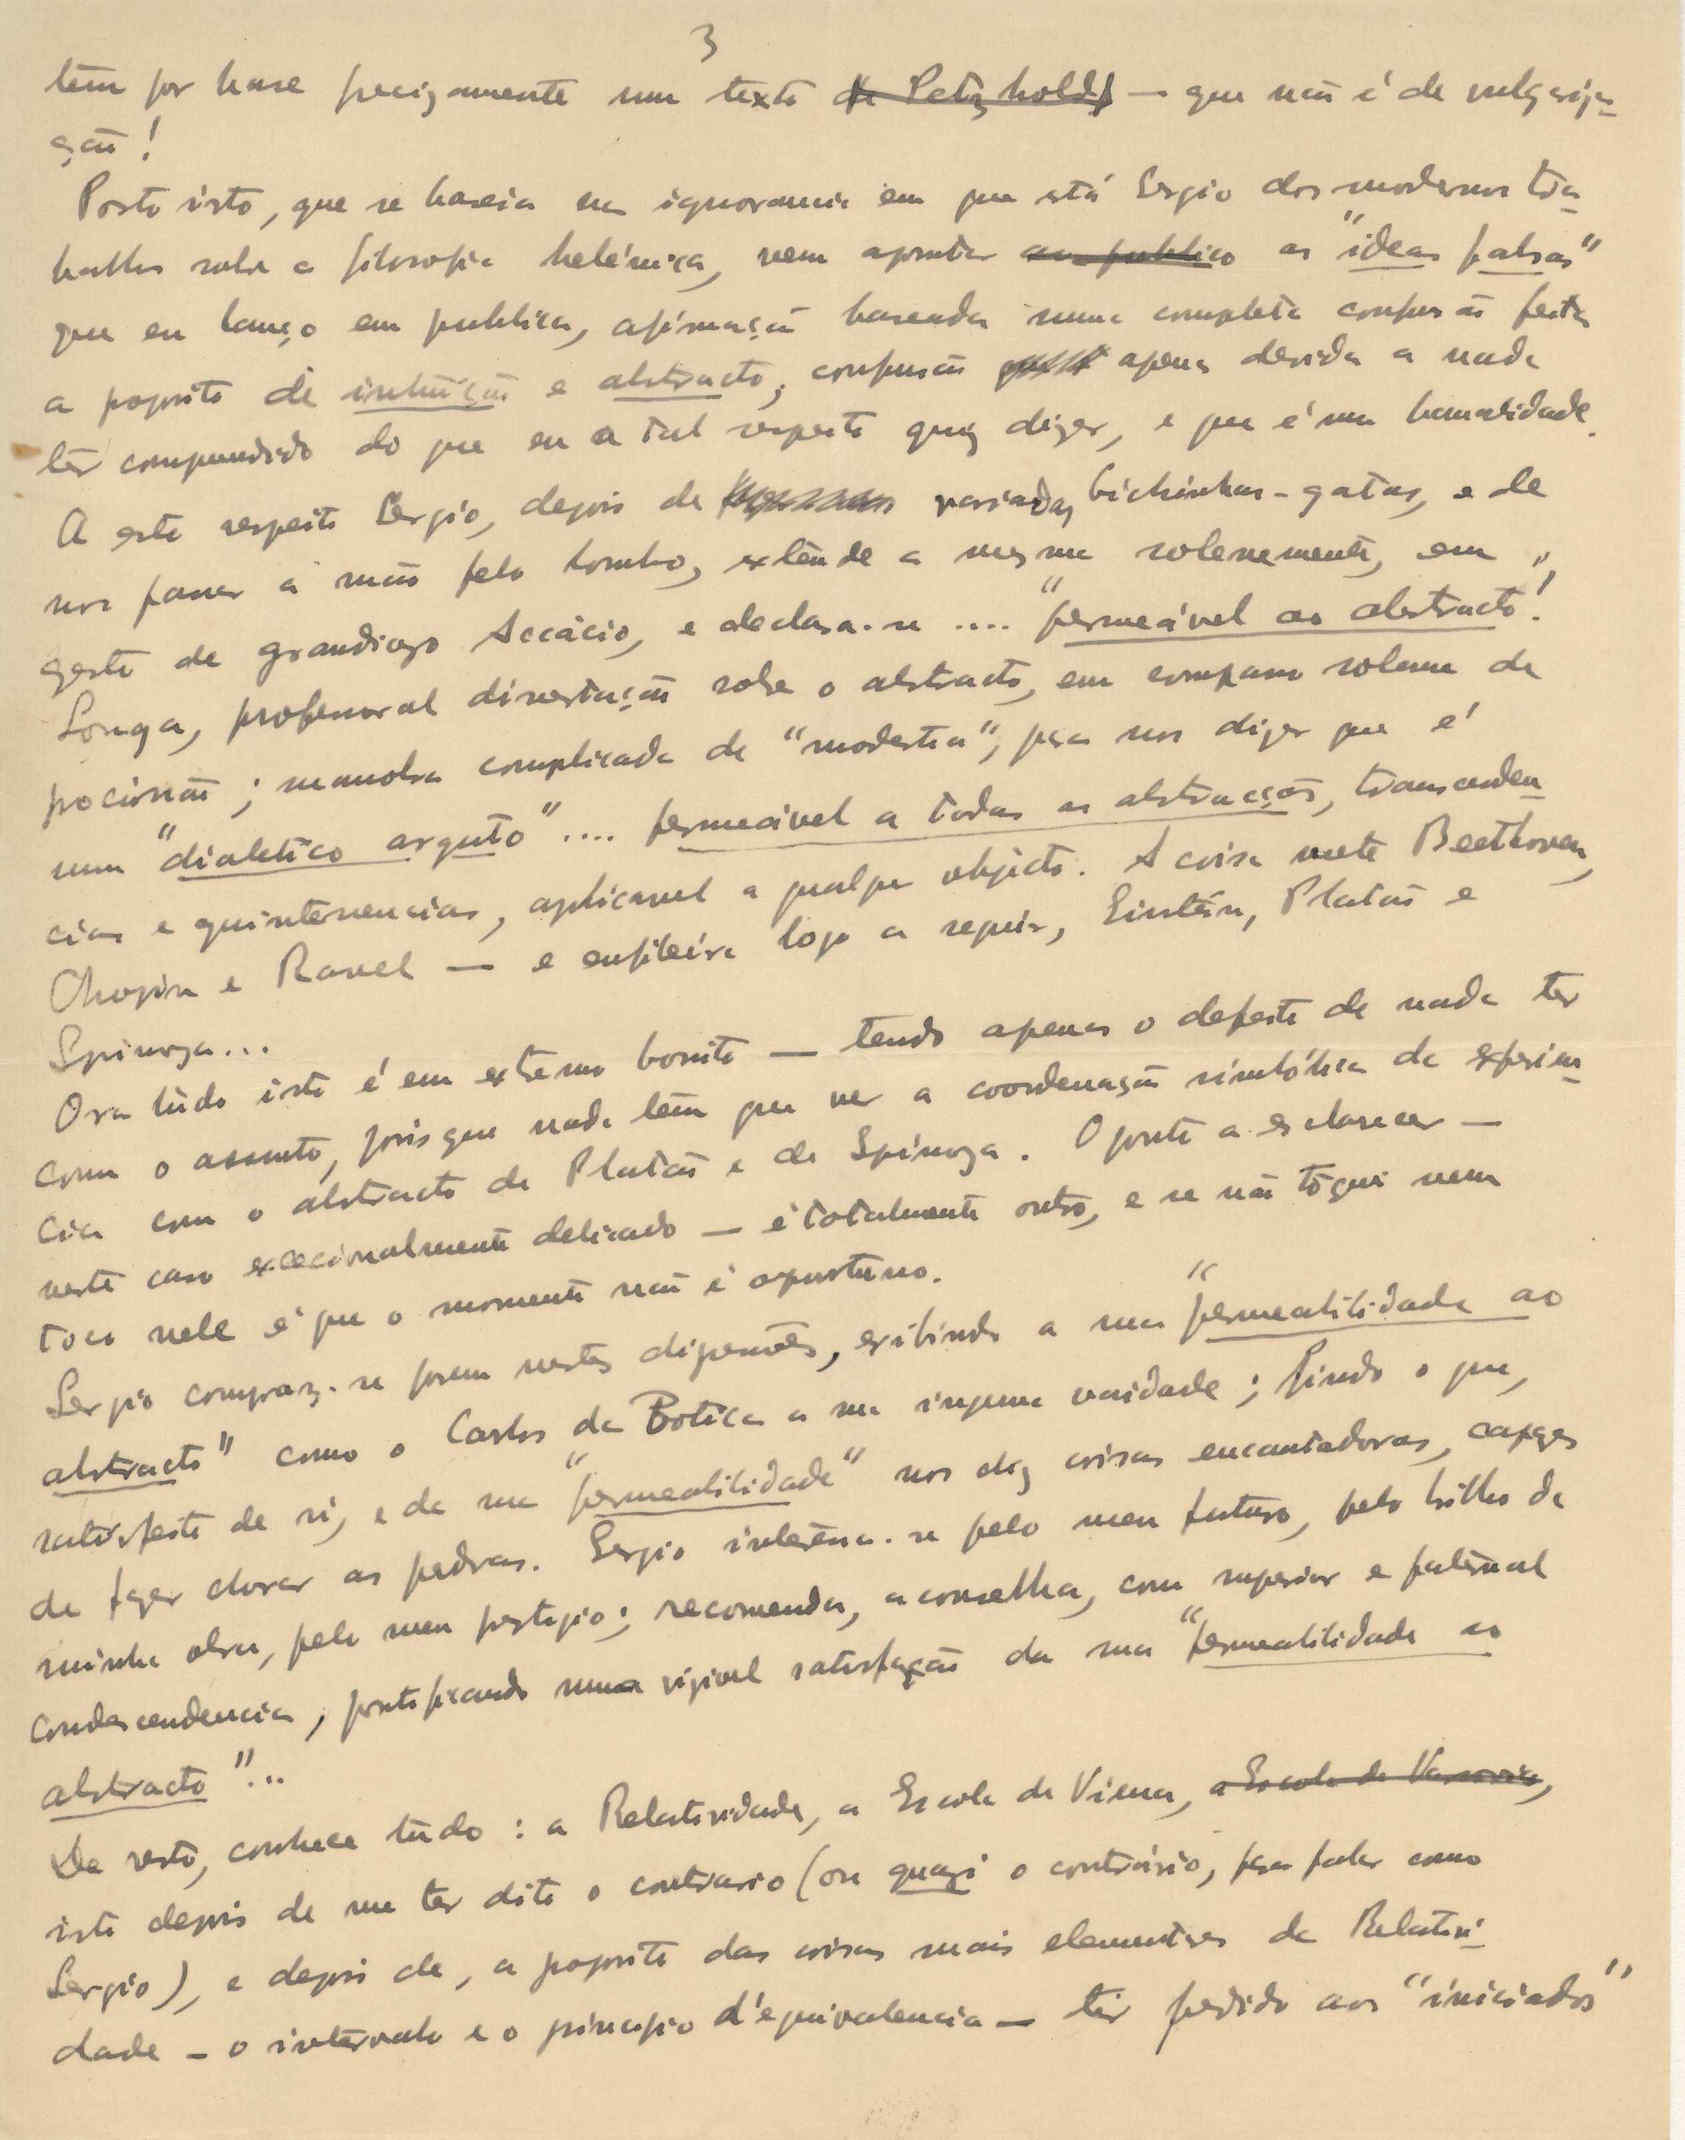 3
têm por base precizamente um texto de Petzholdt — que não é de vulgariza-
ção!
Posto isto, que se baseia na ignorancia em que está Sergio dos modernos tra-
balhos sobre a filosofia helénica, vem apontar ao publico as "ideas falsas"
que eu lanço em publico, afirmação baseada numa completa confusão feita
a proposito de intuição e abstracto, confusão apenas devida a nada
ter compreendido do que eu a tal respeito quiz dizer, e que é uma banalidade.
A este respeito Sergio, depois de variadas bichinhas-gatas, e de
nos passar a mão pelo lombo, extende a mesma solenemente, em
gesto de grandiozo Accácio, e declara-se .... "permeável ao abstracto"!
Longa, professoral dissertação sobre o abstracto, em compasso solene de
procissão; manobra complicada de "modestia", para nos dizer que é
um "dialetico arguto" .... permeável a todas as abstracções, transcenden-
cias e quintessencias, aplicavel a qualquer objecto. A coisa mete Beethoven,
Chopin e Ravel — e enfileira logo a seguir, Einstein, Platão e
Spinoza...
Ora tudo isto é em extremo bonito — tendo apenas o defeito de nada ter
com o assunto, pois que nada têm que ver a coordenação simbólica da experien-
cia com o abstracto de Platão e de Spinoza. O ponto a esclarecer —
neste caso excecionalmente delicado — é totalmente outro, e se não toquei nem
toco nele é que o momento não é oportuno.
Sergio compraz-se porem nestas digressões, exibindo a sua "permeabilidade ao
abstracto" como o Carlos da Botica a sua ingenua vaidade; findo o que,
satisfeito de si, e da sua "permeabilidade" nos diz coisas encantadoras, capazes
de fazer chorar as pedras. Sergio interessa-se pelo meu futuro, pelo brilho da
minha obra, pelo meu prestigio; recomenda, aconselha, com superior e paternal
condescendencia, pontificando numa vizivel satisfação da sua "permeabilidade ao
abstracto"...
De resto, conhece tudo: a Relatividade, a Escola de Viena, a Escola de Varsovia,
isto depois de me ter dito o contrario (ou quazi o contrário, para falar como
Sergio), e depois de, a proposito das coisas mais elementares da Relativi-
dade — o intervalo e o principio d'equivalencia — ter pedido aos "iniciados"